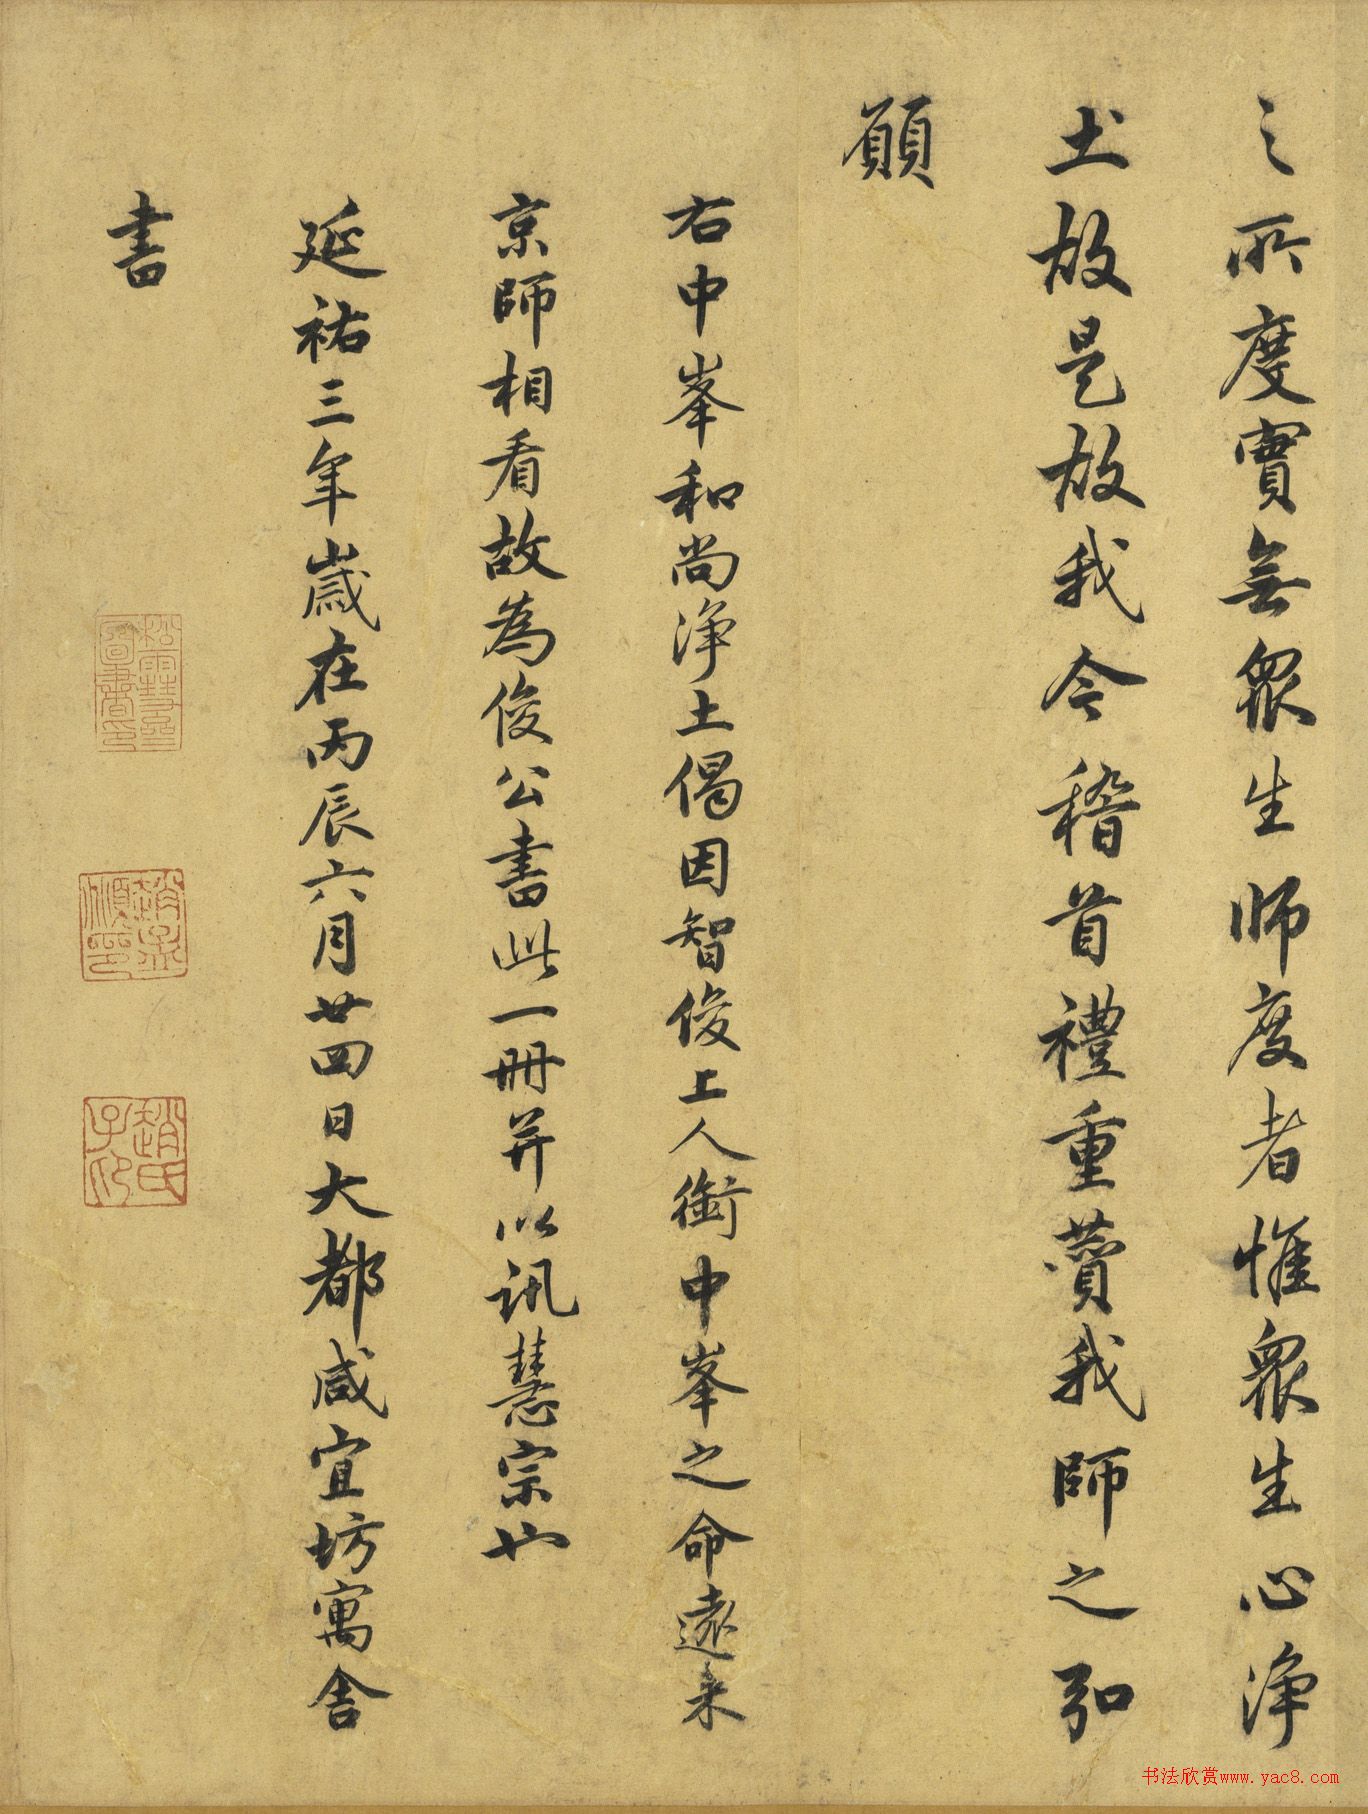 之所度實無眾生师度者惟眾生心淨
土故是故我今稽首禮重讚我師之弘
願
右中峯和尚淨土偈因智俊上人銜中峯之命遠来
京師相看故為俊公書此一冊并以訊慧宗也
延祐三年歲在丙辰六月廿四日大都咸宜坊寓舍
書
趙孟頫印
趙氏子昂
书法欣赏www.yac8.com